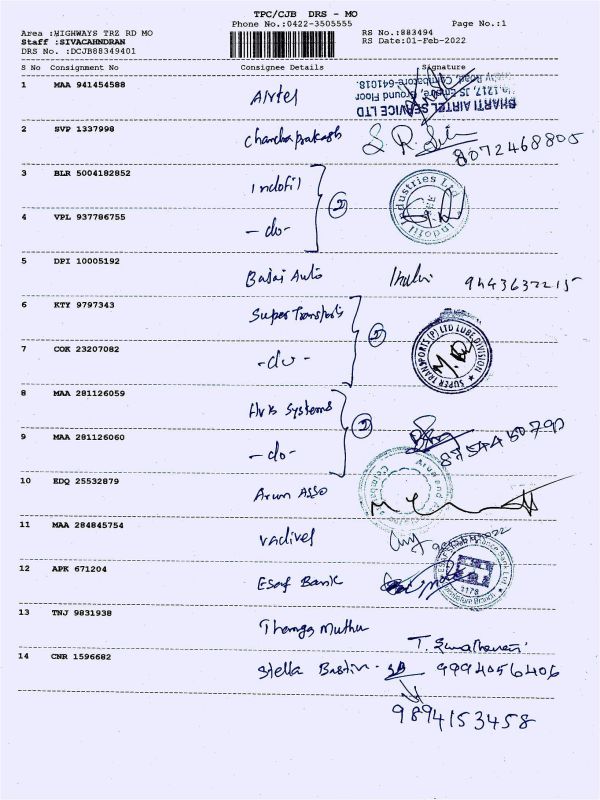 TPC/CJB DRS - MO
Phone No.:0422-3505555
Page No.:1
Area :HIGHWAYS TRZ RD MO
RS No.:883494
Staff :SIVACAHNDRAN
RS Date:01-Feb-2022
DRS No. :DCJB88349401
S No Consignment No Consignee Details Signature
1 MAA 941454588 Airtel
BHARTI AIRTEL SERVICE LTD
No.1217, JS Empire, Ground Floor
Trichy Road, Coimbatore-641018.
2 SVP 1337998 Chandraprakash 8072468805
3 BLR 5004182852 Indofil
②
Indofil Industries Ltd
4 VPL 937786755 -do-
5 DPI 10005192 Bajaj Auto 9443637215
6 KTY 9797343 Super Transports
②
SUPER TRANSPORTS (P) LTD LUBE DIVISION
7 COK 23207082 -do-
8 MAA 281126059 Systems
②
9 MAA 281126060 -do-
10 EDQ 25532879 Arun Asso
11 MAA 284845754 Vadivel
12 APK 671204 Esaf Bank
1178
13 TNJ 9831938 Thanga Muthu
14 CNR 1596682 Stella Bastin 9994056406
9894153458